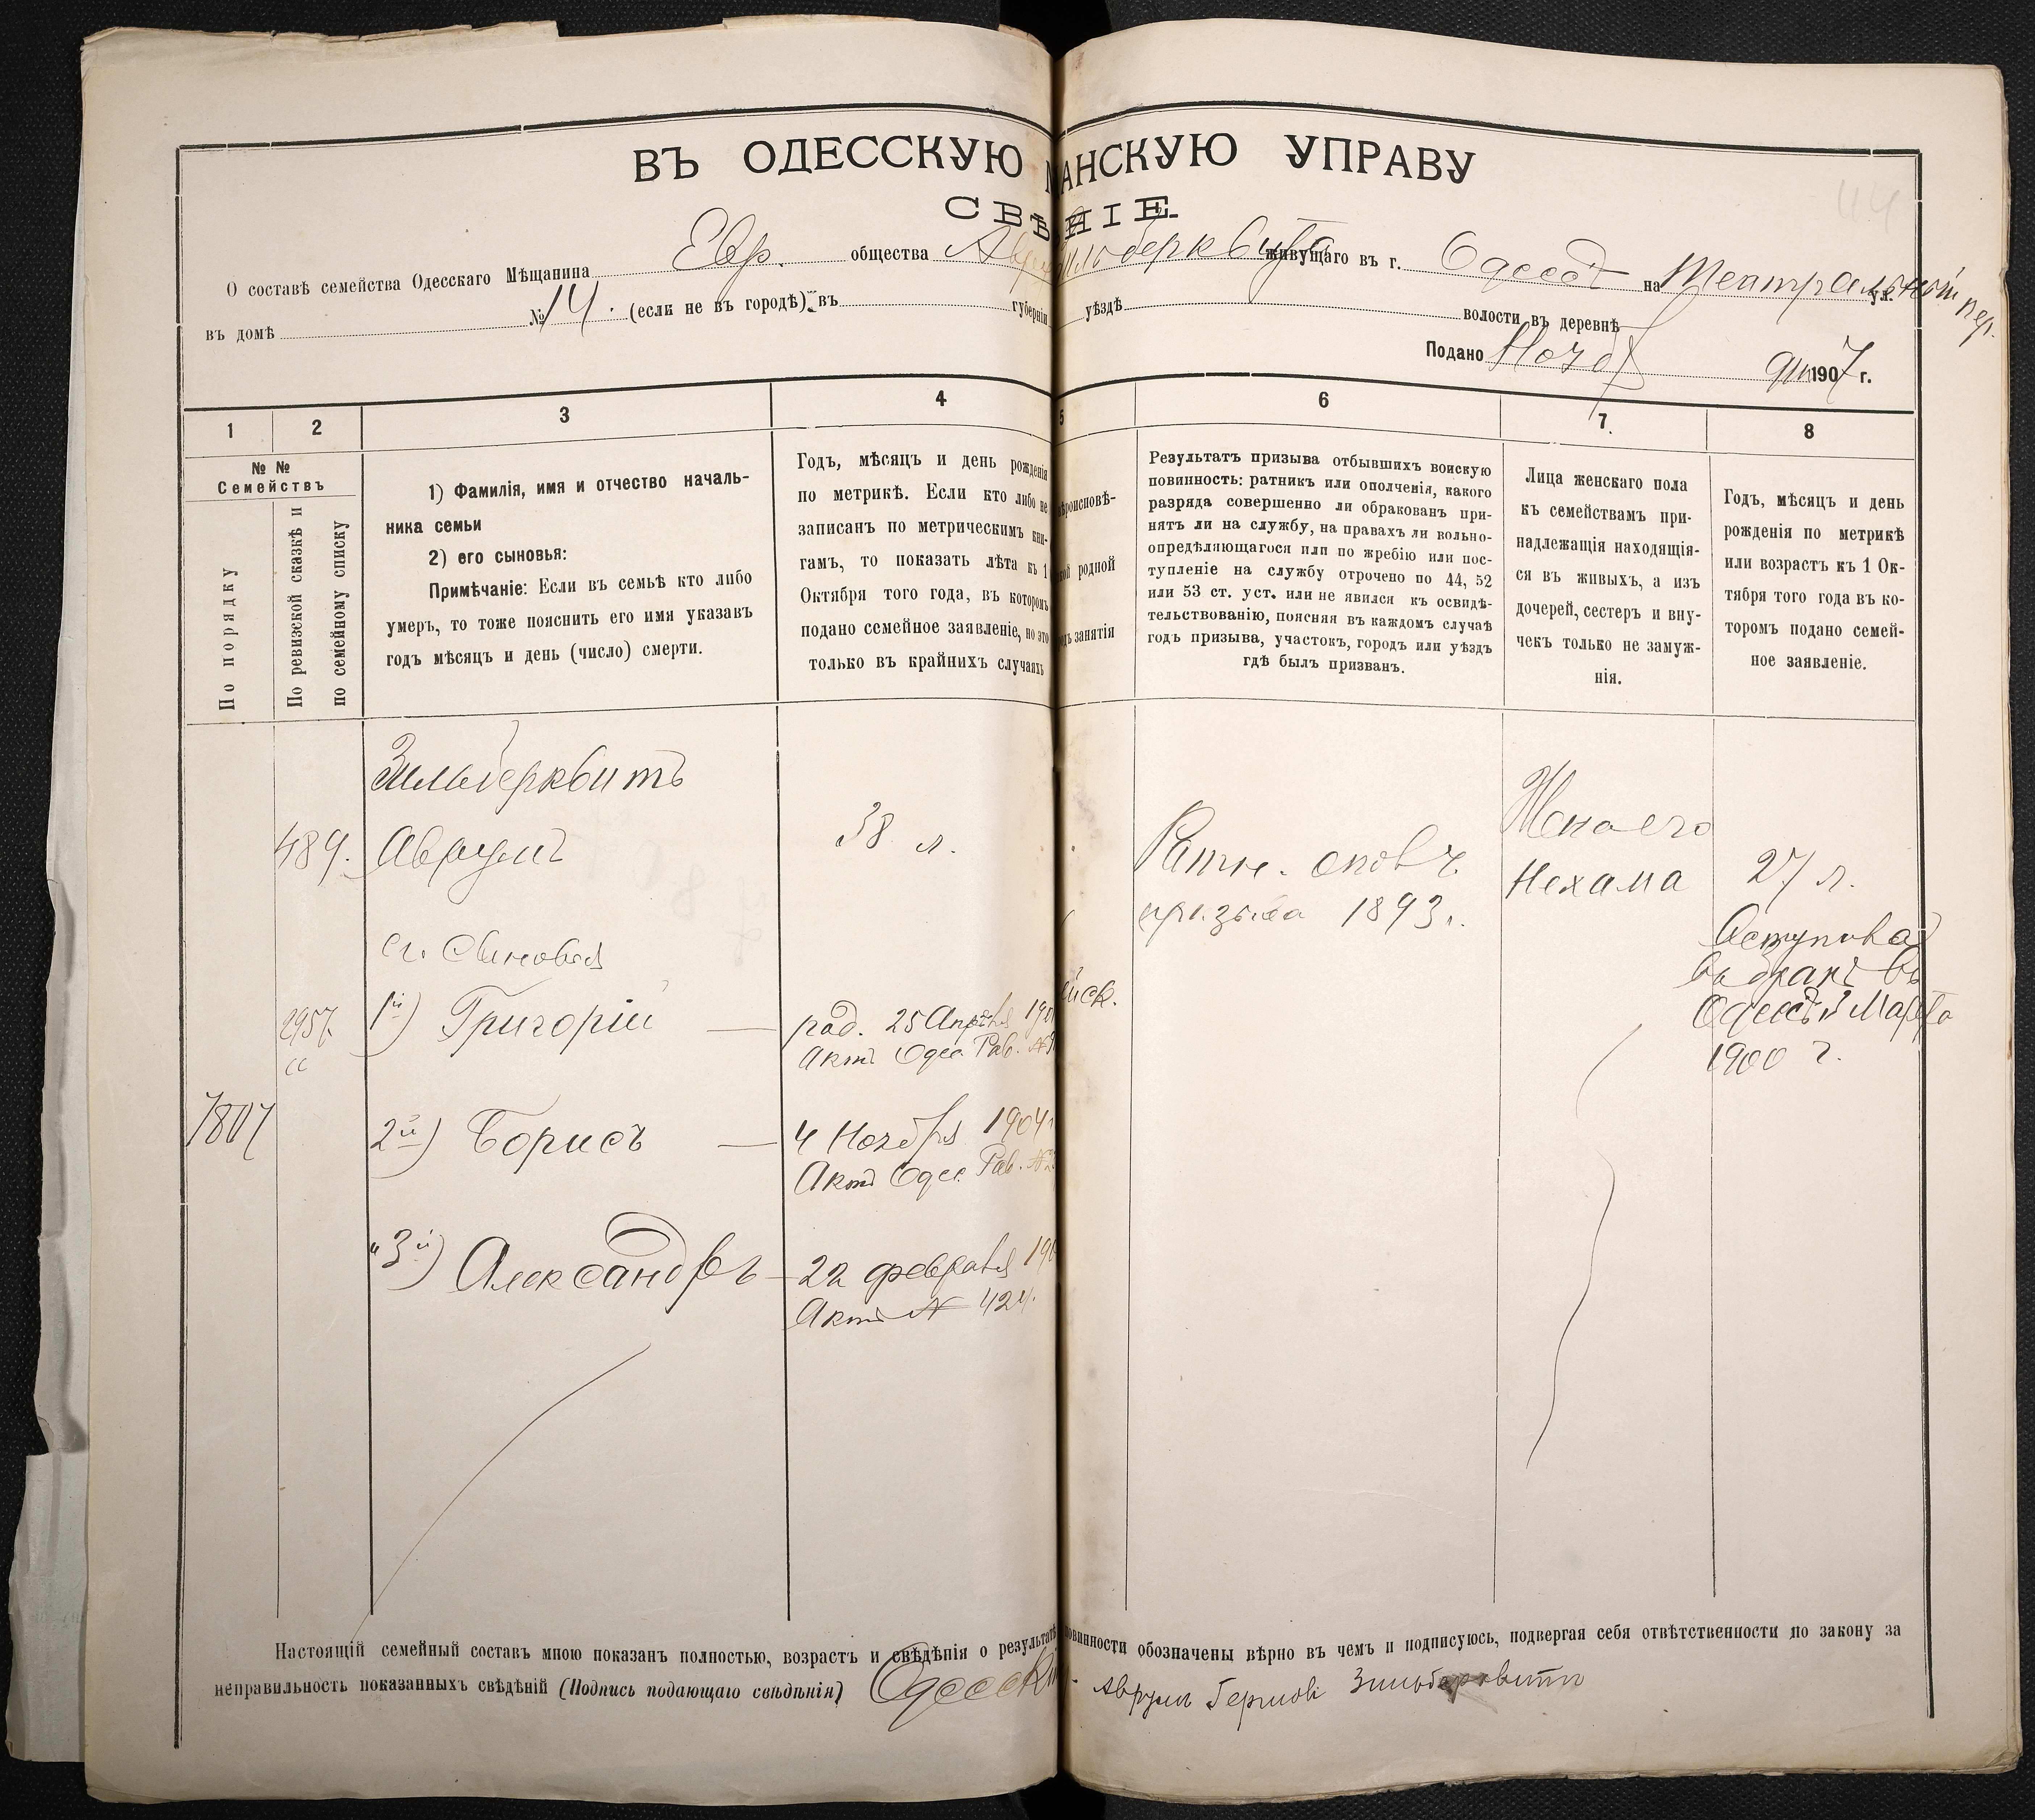 ВЪ ОДЕССКУЮ АНСКУЮ УПРАВУ
СВѢ НІЕ
О составѣ семейства Одесскаго Мѣщанина Евр. общества живущаго въ г. Одессѣ на Театральный пер. ул.
въ домѣ № 14. (если не въ городѣ) въ губерніи уѣздѣ волости въ деревнѣ
Подано Нояб 1907 г.
1 2 3 4 5 6 7. 8
№ №
Семействъ
По порядку
По ревизской сказкѣ и
по семейному списку
1) Фамилія, имя и отчество началь-
ника семьи
2) его сыновья:
Примѣчаніе: Если въ семьѣ кто либо
умеръ, то тоже пояснить его имя указавъ
годъ мѣсяцъ и день (число) смерти.
Годъ, мѣсяцъ и день рожденія
по метрикѣ. Если кто либо не
записанъ по метрическимъ кни-
гамъ, то показать лѣта къ 1
Октября того года, въ которомъ
подано семейное заявленіе, но это
только въ крайнихъ случаяхъ
роисповѣ-
родной
занятія
Результатъ призыва отбывшихъ воискую
повинность: ратникъ или ополченія, какого
разряда совершенно ли обракованъ при-
нятъ ли на службу, на правахъ ли вольно-
опредѣляющагося или по жребію или пос-
тупленіе на службу отрочено по 44, 52
или 53 ст. уст. или не явился къ освидѣ-
тельствованію, поясняя въ каждомъ случаѣ
годъ призыва, участокъ, городъ или уѣздъ
гдѣ былъ призванъ.
Лица женскаго пола
къ семействамъ при-
надлежащія находящія-
ся въ живыхъ, а изъ
дочерей, сестеръ и вну-
чекъ только не замуж-
нія.
Годъ, мѣсяцъ и день
рожденія по метрикѣ
или возрастъ къ 1 Ок-
тября того года въ ко-
торомъ подано семей-
ное заявленіе.
Зильберквитъ
489. Аврумъ 38 л.
Ратн. опол ч.
призыва 1893 г.
Жена его
Нехама
27 л.
въ бракъ въ
Одессѣ Марта
1900 г.
ег. сыновья
2957. 1й) Григорій — род. 25 Апрѣля 190
Актъ Одес. Рав. №
йск.
7807 2й) Борисъ — 4 Ноября 1904
Актъ Одес. Рав. №
" 3й) Александръ — 22 февраля 190
Актъ № 424.
Настоящій семейный составъ мною показанъ полностью, возрастъ и свѣдѣнія о результатѣ повинности обозначены вѣрно въ чемъ и подписуюсь, подвергая себя отвѣтственности по закону за
неправильность показанныхъ свѣдѣній (Подпись подающаго свѣдѣнія) Одесскі Аврумъ Гершові Зильберквитъ